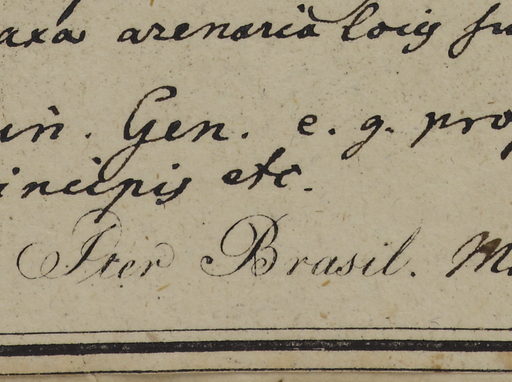 axa arenaria locis su
in. Gen. e. g. pro
incipis etc.
Iter Brasil. M